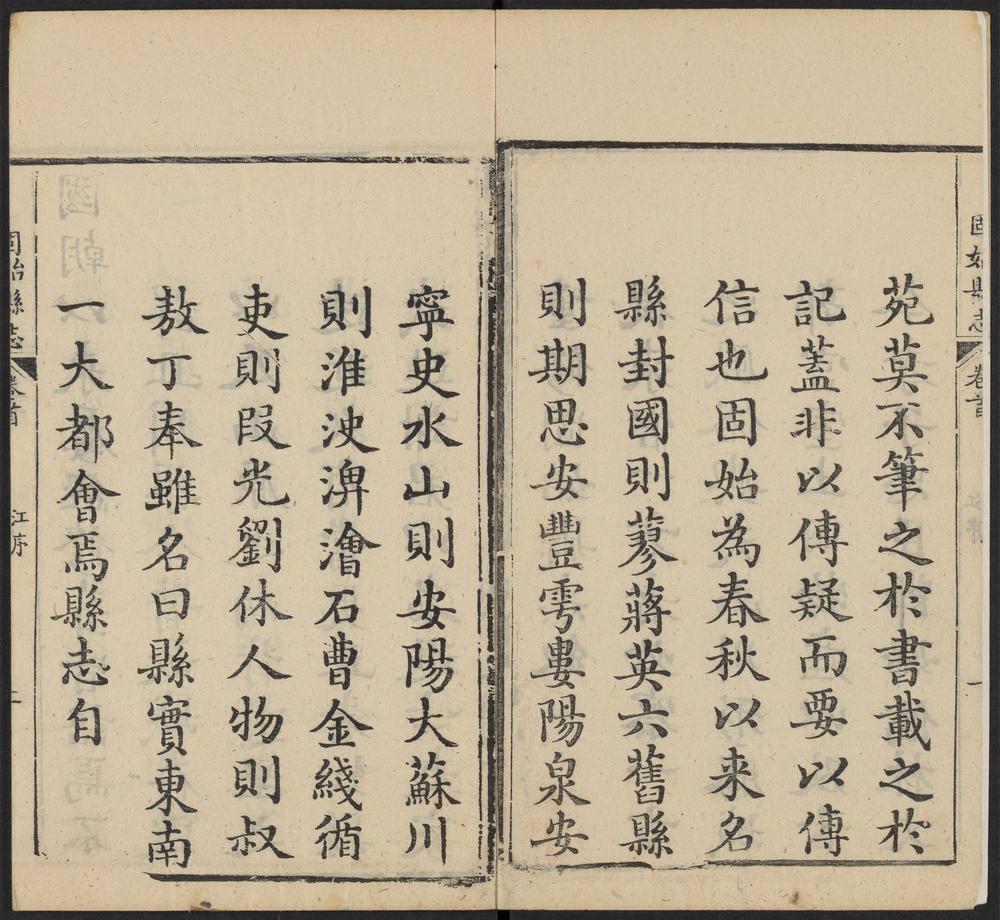 固始縣志
卷首
一
苑莫不筆之於書載之於
記蓋非以傳疑而要以傳
信也固始為春秋以来名
縣封國則蓼蔣英六舊縣
則期思安豐雩婁陽泉安
寧史水山則安陽大蘇川
則淮泱淠澮石曹金綫循
吏則叚光劉休人物則叔
敖丁奉雖名曰縣實東南
一大都會焉縣志自
固始縣志
卷首
江序
二